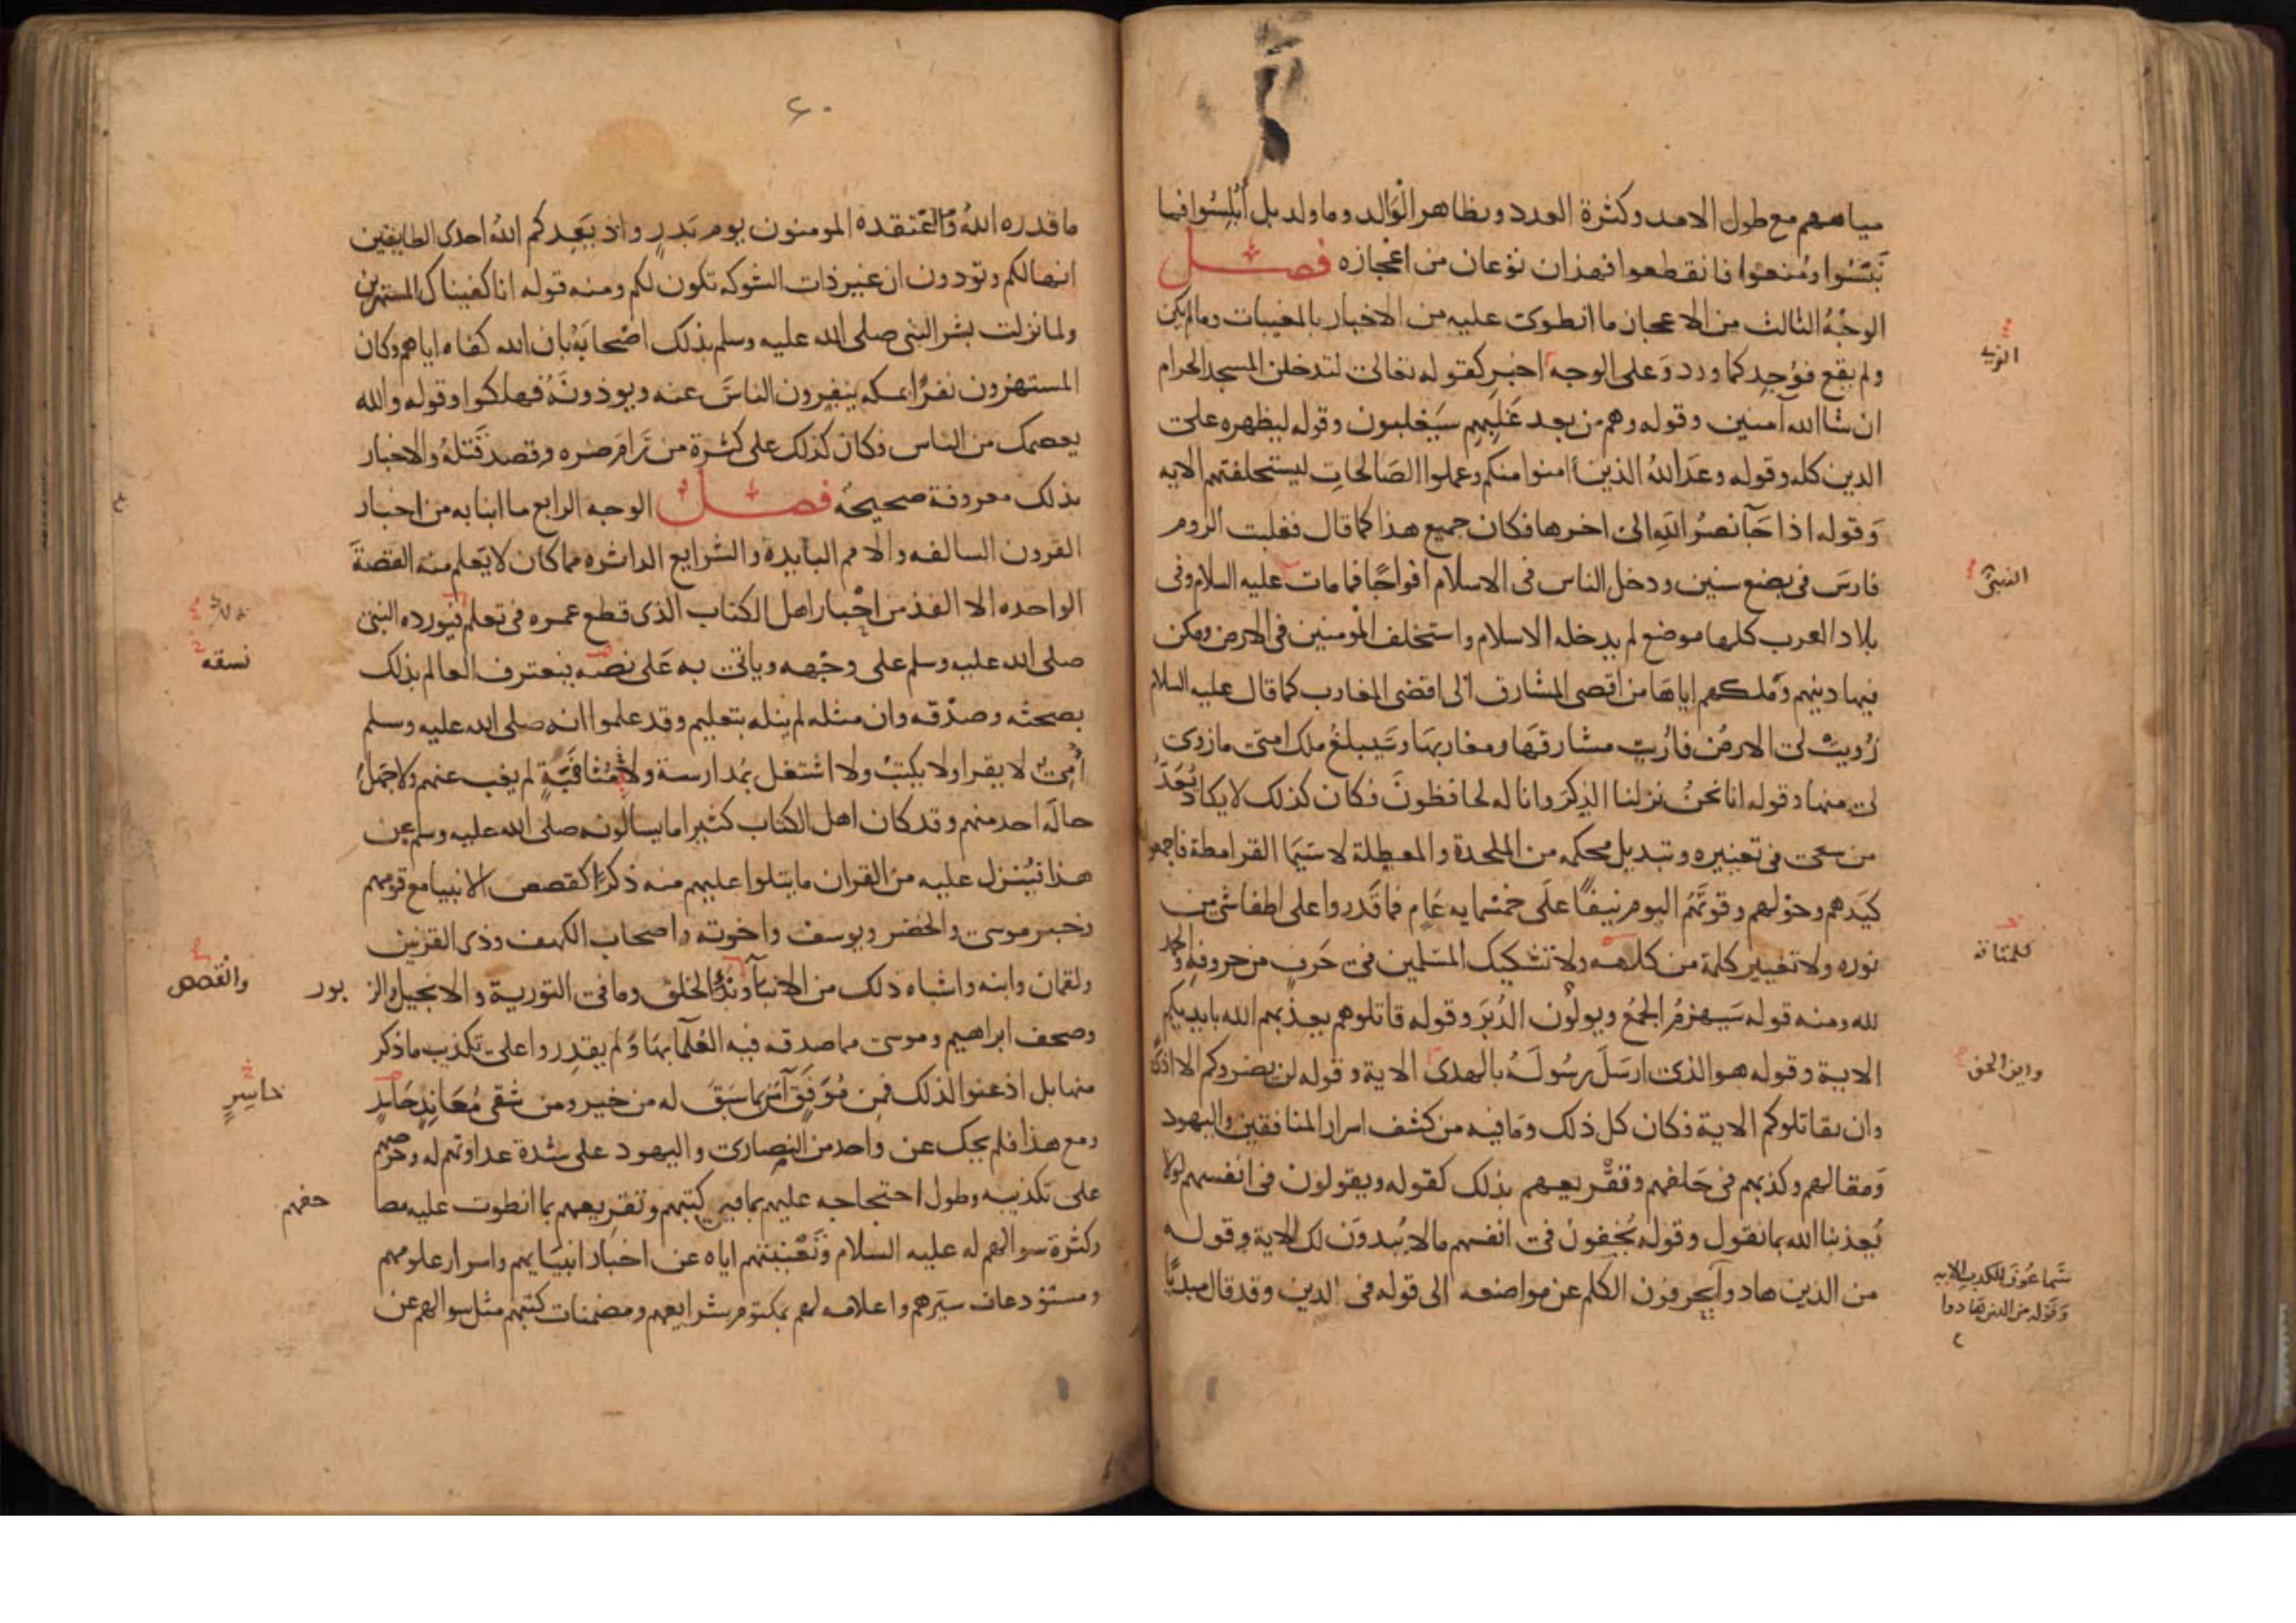 مياههم مع طول الامد وكثرة العدد وتظاهر الوالد وما ولد بل ابلسوا فما
نبسوا ومنعوا فانقطعوا فهذان نوعان من اعجازه فصل
الوجه الثالث من الاعجاز ما انطوى عليه من الاخبار بالمغيبات وما لم يكن
ولم يقع فوجد كما ورد وعلى الوجه اخبر كقوله تعالى لتدخلن المسجد الحرام
الذي
ان شا الله آمنين وقوله وهم من بعد غلبهم سيغلبون وقوله ليظهره على
الدين كله وقوله وعد الله الذين امنوا منكم وعملوا الصالحات ليستخلفنهم الايه
وقوله اذا جآ نصر الله الى اخرها فكان جميع هذا كما قال فغلبت الروم
فارس في بضع سنين ودخل الناس في الاسلام افواجا فما مات عليه السلام وفى
النبى
بلاد العرب كلها موضع لم يدخله الاسلام واستخلف المومنين في الارض ومكن
فيها دينهم وملكهم اياها من اقصى المشارق الى اقصى المغارب كما قال عليه السلام
زويت لى الارض فاريت مشارقها ومغاربها وسيبلغ ملك امتى ما زوى
لى منها وقوله انا نحن نزلنا الذكر وانا له لحافظون فكان كذلك لا يكاد يعد
من سعى في تغييره وتبديل محكمه من الملحدة والمعطلة لا سيما القرامطة فاجمعوا
كيدهم وحولهم وقوتهم اليوم نيفا على خمسمايه عام فما قدروا على اطفا شى من
نوره ولا تغيير كلمة من كلامه ولا تشكيك المسلمين في حرف من حروفه والحمد
لله ومنه قوله سيهزم الجمع ويولون الدبر وقوله قاتلوهم يعذبهم الله بايديكم
الاية وقوله هو الذى ارسل رسوله بالهدى الاية وقوله لن يضروكم الا اذى
ودين الحق
وان يقاتلوكم الاية فكان كل ذلك وما فيه من كشف اسرار المنافقين واليهود
ومقالهم وكذبهم في حلفهم وتقريعهم بذلك كقوله ويقولون في انفسهم لولا
يعذبنا الله بما نقول وقوله يخفون فى انفسهم ما لا يبدون لك الاية وقوله
من الذين هادوا يحرفون الكلم عن مواضعه الى قوله في الدين وقد قال مبديا
سماعون للكذب الايه
وقوله من الذين هادوا
٦٠
ما قدره الله واعتقده المومنون يوم بدر واذ يعدكم الله احدى الطايفتين
انها لكم وتودون ان غير ذات الشوكه تكون لكم ومنه قوله انا كفيناك المستهزين
ولما نزلت بشر النبى صلى الله عليه وسلم بذلك اصحابه بان الله كفاه اياهم وكان
المستهزون نفرا بمكه ينفرون الناس عنه ويوذونه فهلكوا وقوله والله
يعصمك من الناس فكان كذلك على كثرة من رام ضره وقصد قتله والاخبار
بذلك معروفة صحيحه فصل الوجه الرابع ما انبا به من اخبار
القرون السالفه والامم البايدة والشرايع الداثره مما كان لا يعلم منه القصة
الواحده الا الفذ من احبار اهل الكتاب الذى قطع عمره في تعلم فيورده النبى
صلى الله عليه وسلم على وجهه وياتى به على نصه فيعترف العالم بذلك
نسقه
بصحته وصدقه وان مثله لم ينله بتعليم وقد علموا انه صلى الله عليه وسلم
أمى لا يقرا ولا يكتب ولا اشتغل بمدارسة ولا مثافنة لم يغب عنهم ولا جهل
حاله احد منهم وقد كان اهل الكتاب كثيرا ما يسالونه صلى الله عليه وسلم عن
هذا فينزل عليه من القران ما يتلوا عليهم منه ذكرا كقصص الانبيا مع قومهم
وخبر موسى والخضر ويوسف واخوته واصحاب الكهف وذى القرنين
ولقمان وابنه واشباه ذلك من الانبآ وبدء الخلق وما فى التورية والانجيل والز بور
والقصص
وصحف ابراهيم وموسى مما صدقه فيه العلمآ بها ولم يقدروا على تكذيب ما ذكر
منها بل اذعنوا لذلك فمن موفق آمن بما سبق له من خير ومن شقى معاند حاسد
خاسر
ومع هذا فلم يحك عن واحد من النصارى واليهود على شدة عداوتهم له وحرصهم
على تكذيبه وطول احتجاجه عليهم بما في كتبهم وتقريعهم بما انطوت عليه مصا حفهم
وكثرة سوالهم له عليه السلام وتعنيتهم اياه عن اخبار انبيايهم واسرار علومهم
ومستودعات سيرهم واعلامه لهم بمكتوم شرايعهم ومضمنات كتبهم مثل سوالهم عن